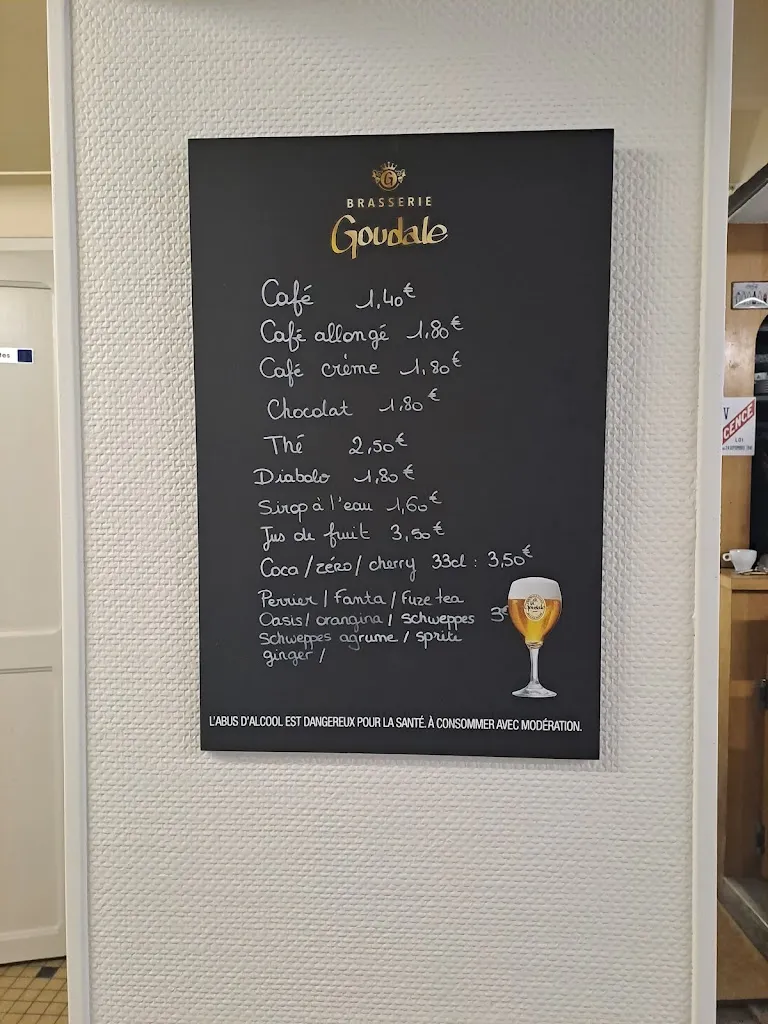 BRASSERIE
Goudale
Café 1,40€
Café allongé 1,80€
Café crème 1,80€
Chocolat 1,80€
Thé 2,50€
Diabolo 1,80€
Sirop à l'eau 1,60€
Jus de fruit 3,50€
Coca / zéro / cherry 33cl : 3,50€
Perrier / Fanta / Fuze tea
Oasis / orangina / schweppes 3€
Schweppes agrume / sprite
ginger /
Goudale
L'ABUS D'ALCOOL EST DANGEREUX POUR LA SANTÉ. À CONSOMMER AVEC MODÉRATION.